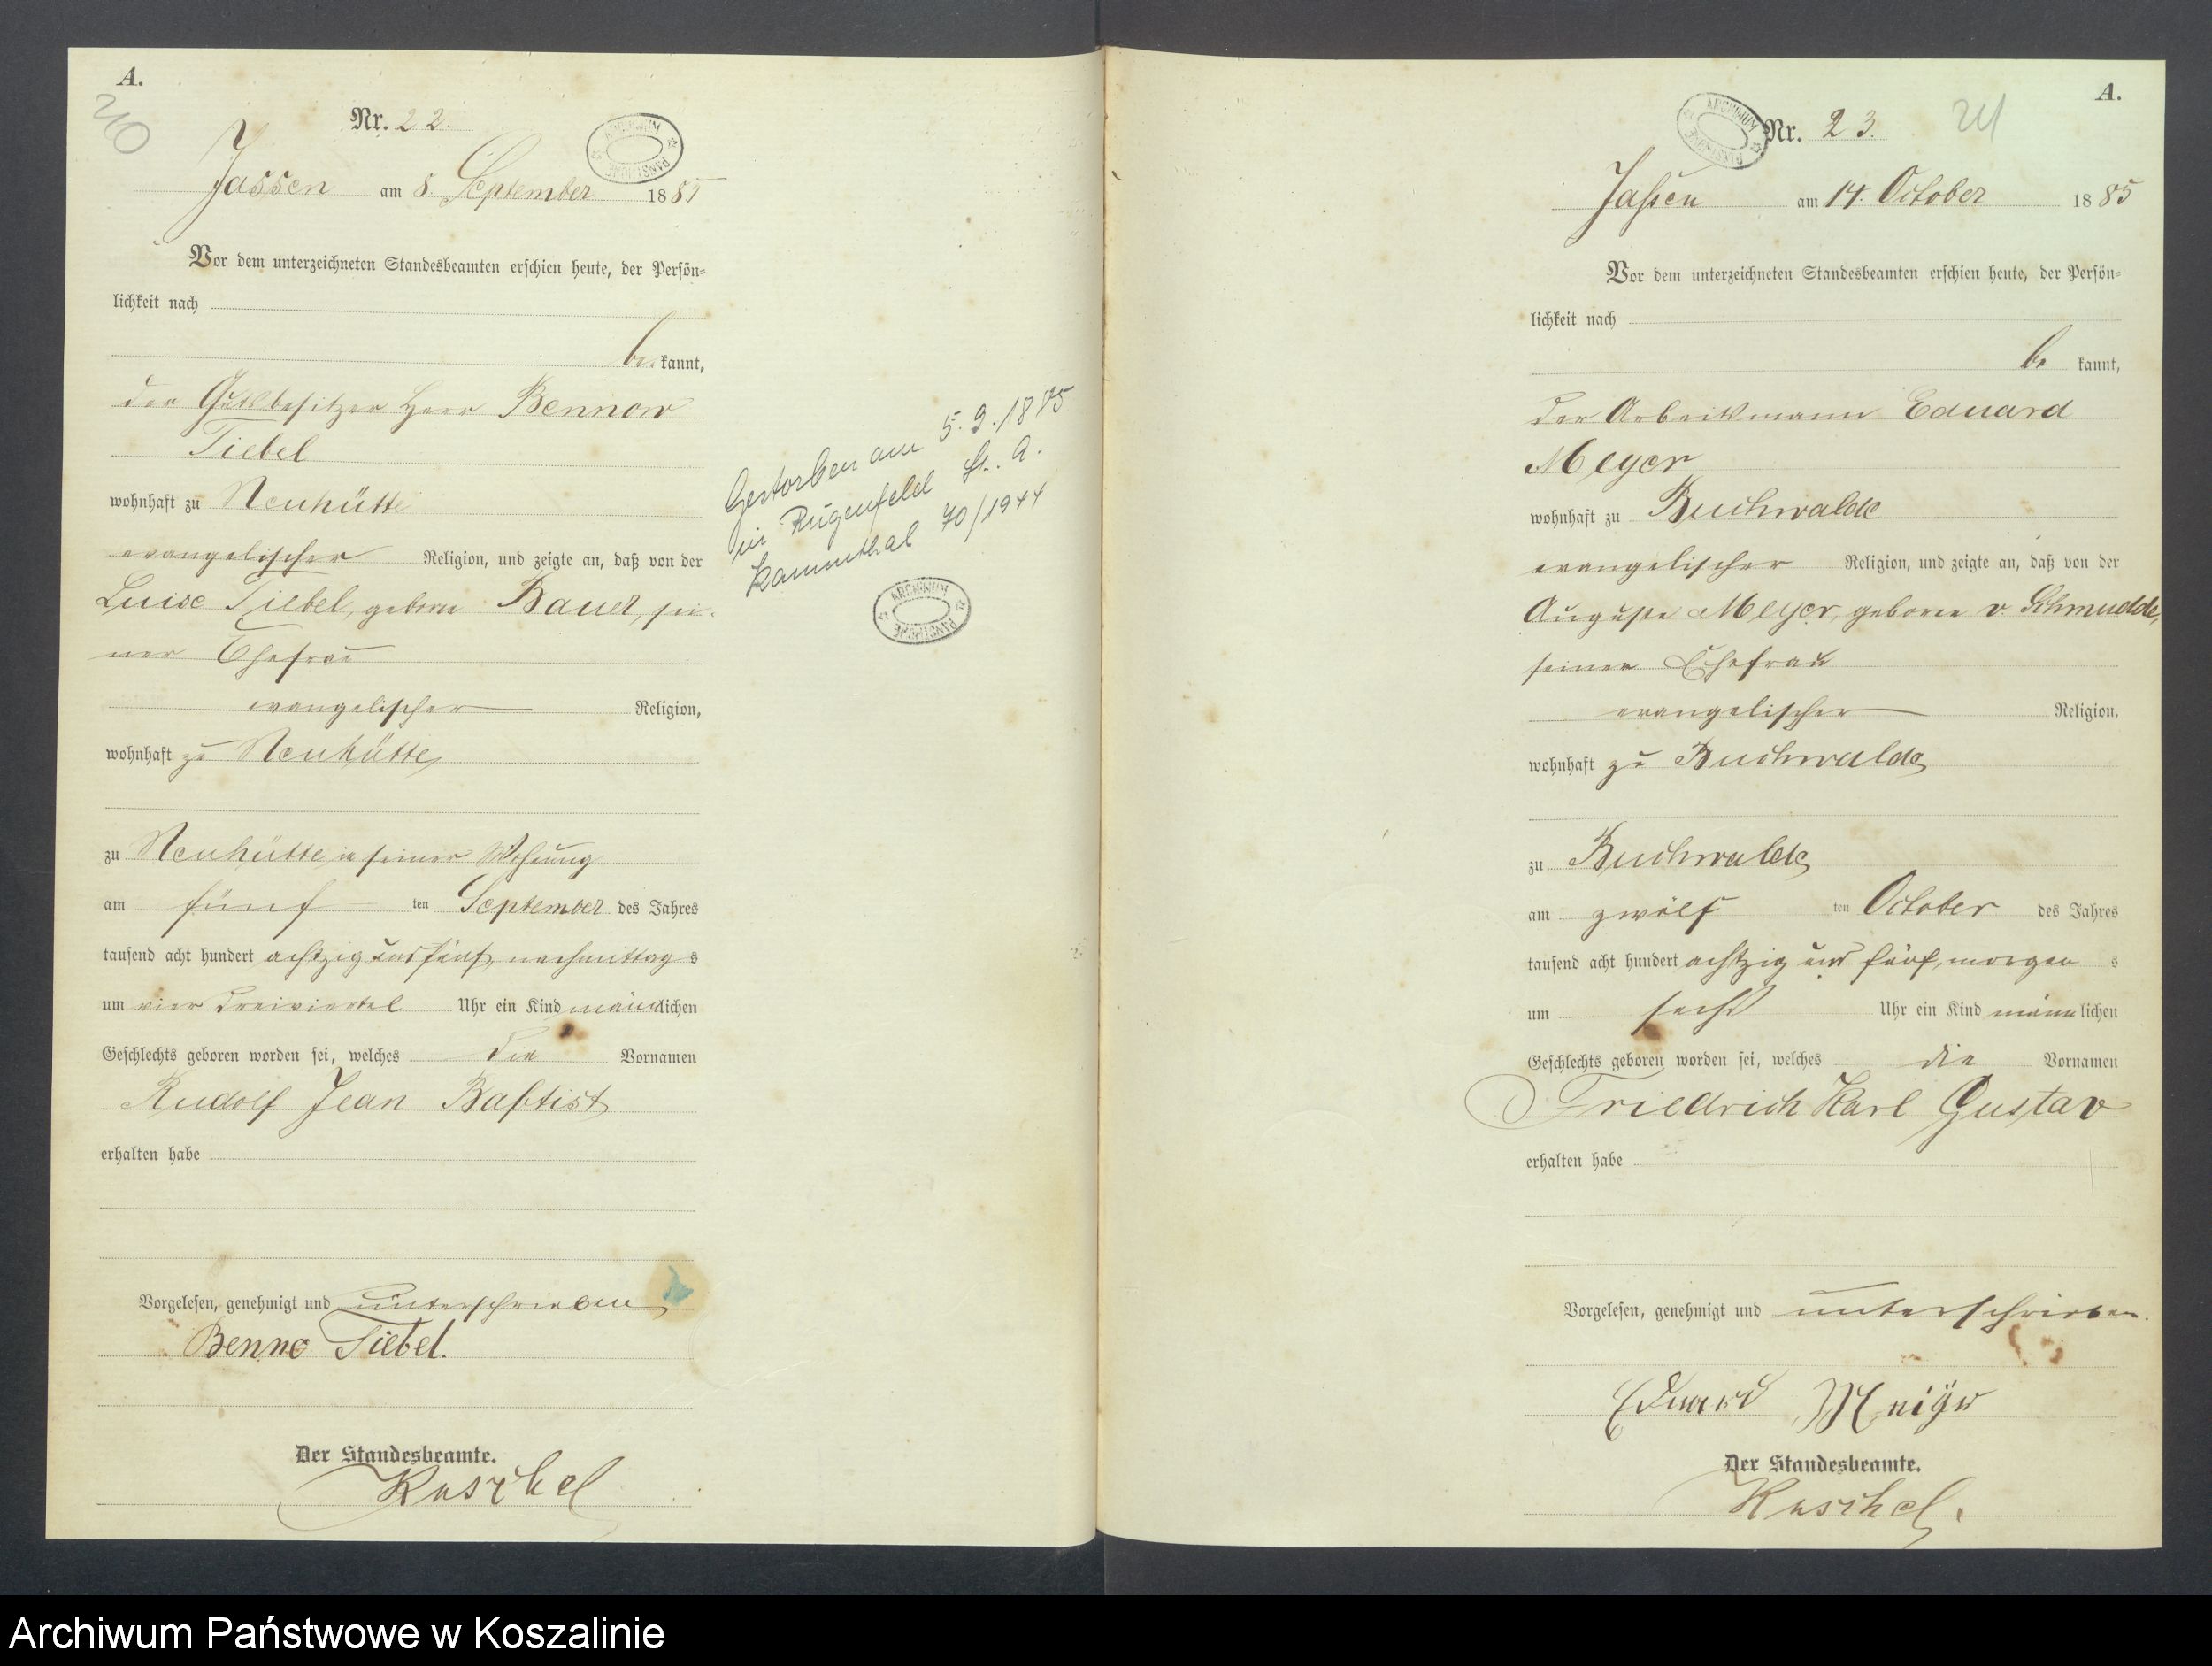 A.
210
Nr. 22.
ARCHIWUM PAŃSTWOWE
Jassen am 8. September 1885
Vor dem unterzeichneten Standesbeamten erschien heute, der Persön-
lichkeit nach
be kannt,
der Gutsbesitzer Herr Bennow
Tiebel
wohnhaft zu Neuhütte
evangelischer Religion, und zeigte an, daß von der
Luise Tiebel, geborne Bauer, sei-
ner Ehefrau
evangelischer Religion,
wohnhaft zu Neuhütte
zu Neuhütte in seiner Wohnung
am fünf ten September des Jahres
tausend acht hundert achtzig und fünf, nachmittag s
um vier dreiviertel Uhr ein Kind männlichen
Geschlechts geboren worden sei, welches die Vornamen
Rudolf Jean Baptist
erhalten habe
Vorgelesen, genehmigt und unterschrieben
Benno Tiebel.
Der Standesbeamte.
Kuschel
Gestorben am 5.9.18
in Rügenfeld St. A.
Kammthal 70/1944
ARCHIWUM PAŃSTWOWE
A.
ARCHIWUM PAŃSTWOWE
Nr. 23. 211
Jassen am 14. October 1885
Vor dem unterzeichneten Standesbeamten erschien heute, der Persön-
lichkeit nach
be kannt,
der Arbeitsmann Eduard
Meyer
wohnhaft zu Buchwalde
evangelischer Religion, und zeigte an, daß von der
Auguste Meyer, geborne v. Schmudde,
seiner Ehefrau
evangelischer Religion,
wohnhaft zu Buchwalde
zu Buchwalde
am zwölf ten October des Jahres
tausend acht hundert achtzig und fünf, morgen s
um sechs Uhr ein Kind männlichen
Geschlechts geboren worden sei, welches die Vornamen
Friedrich Karl Gustav
erhalten habe
Vorgelesen, genehmigt und unterschrieben.
Eduard Meiÿer
Der Standesbeamte.
Kuschel.
Archiwum Państwowe w Koszalinie